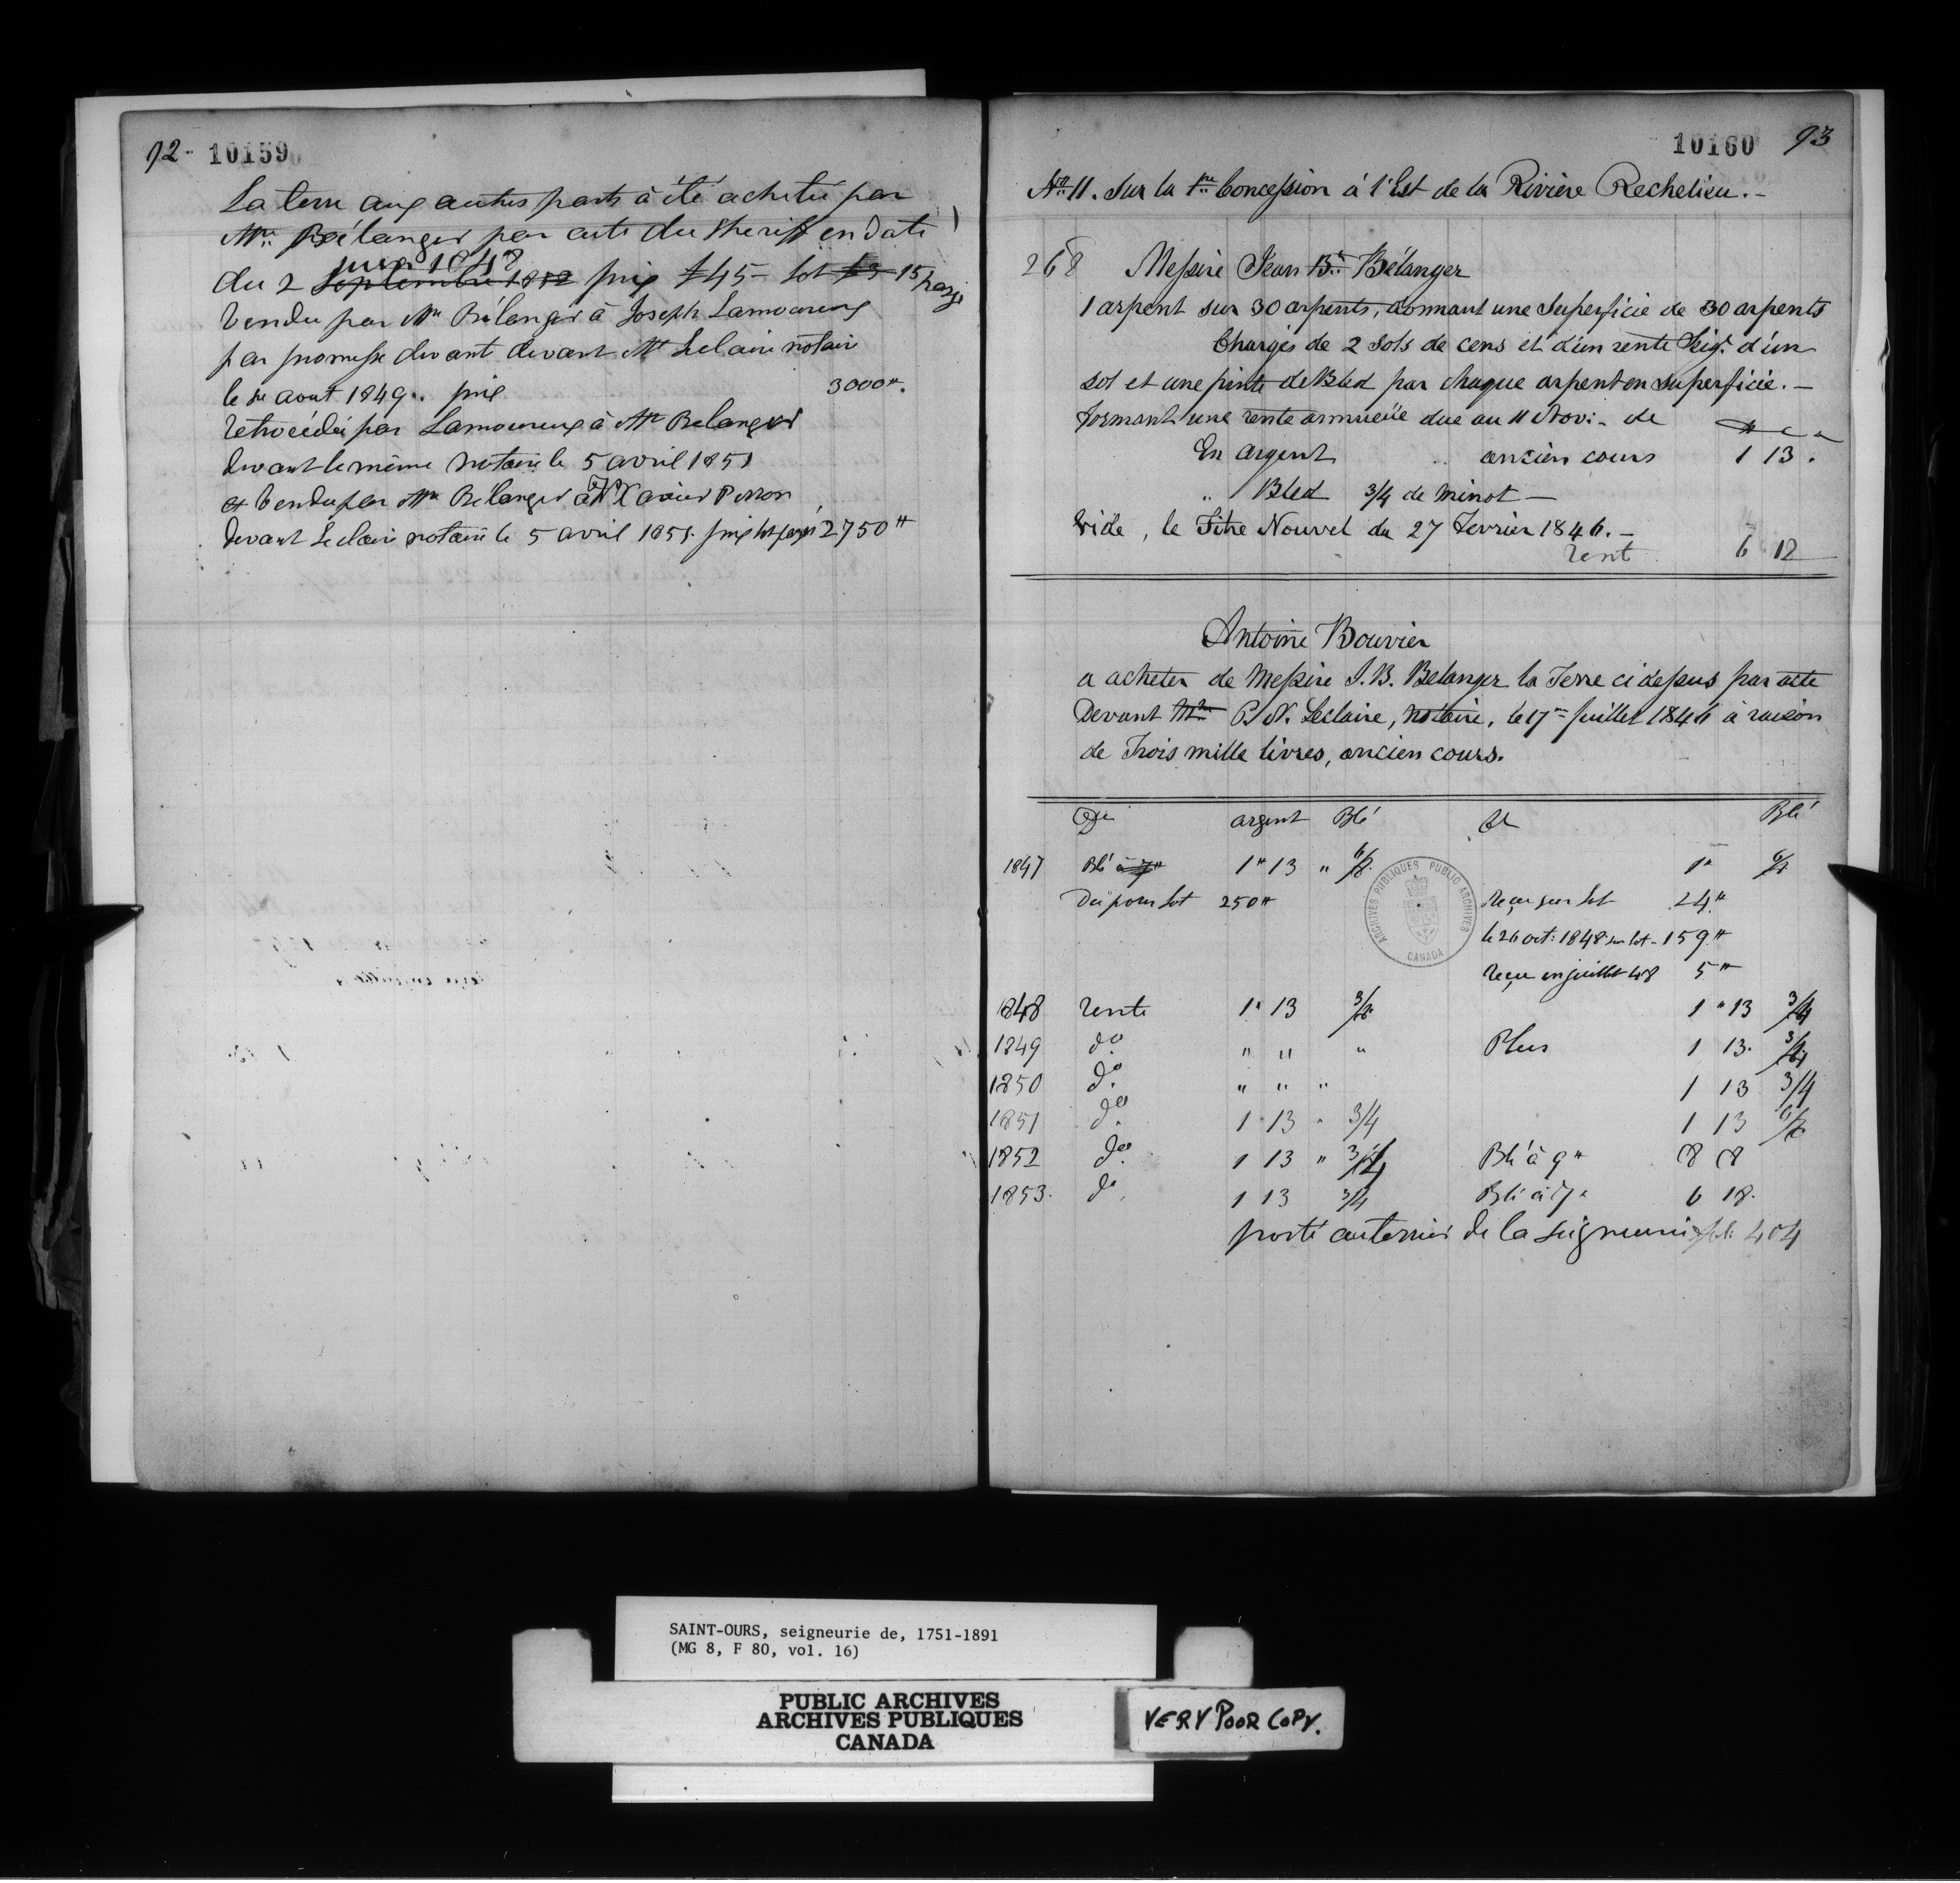 92- 10159
La terre aux autres parts à été achetée par
Mre Bélanger par acte du Sheriff en date
juin 1848
du 2 Septembre 1852 prix £45 – lot £3 15 payé
Vendu par Mre Bélanger à Joseph Lamoureux
par promesse devant devant Mtre Leclaire notaire
le 1er aout 1849.. prix 3000tt.
rétrocédée par Lamoureux à Mre Belanger
devant le même notaire le 5 avril 1851
et Vendu par Mre Bélanger à Xavier Perron
devant Leclaire notaire le 5 avril 1851. prix lot payé 2750tt
10160 93
No 11. Sur la 1re Concession à l'Est de la Rivière Rechelieu. –
268 Messire Jean Bte Bélanger
1 arpent sur 30 arpents, donnant une Superficie de 30 arpents
Chargés de 2 Sols de cens et d'un rente Seigr. d'un
sol et une pinte de Bled par chaque arpent en superficie. –
formant une rente annuelle due au 11 Nov: – de
En argent .. ancien cours 1 13 .
" Bled 3/4 de minot –
Vide, le Titre Nouvel du 27 Fevrier 1846. –
rent 6 12
Antoine Bouvier
a acheter de Messire J. B. Belanger la Terre ci dessus par acte
Devant Mtre P. N. Leclaire, notaire, le 17me Juillet 1846 à raison
de Trois mille livres, ancien cours.
Doit argent Blé Blé
1847 Blé à 7tt 1tt 13 " 6/8 1" 6/8
Du pour Lot 250tt Reçu sur Lot 24tt
le 26 oct: 1848 sur lot - 159tt
Reçu en juillet 48 5tt
1848 rente 1" 13 3/4 1 " 13 3/4
1849 do " " " Plus 1 13. 3/4
1850 do " " " 1 13 3/4
1851 do 1 13 " 3/4 1 13 6/8
1852 do 1 13 " 3/4 Blé à 9tt 8 8
1853. do 1 13 3/4 Blé à 7" 6 18.
porté au terrier de la seigneurie folio 404
ARCHIVES PUBLIQUES PUBLIC ARCHIVES
CANADA
SAINT-OURS, seigneurie de, 1751-1891
(MG 8, F 80, vol. 16)
PUBLIC ARCHIVES
ARCHIVES PUBLIQUES
CANADA
VERY POOR COPY.